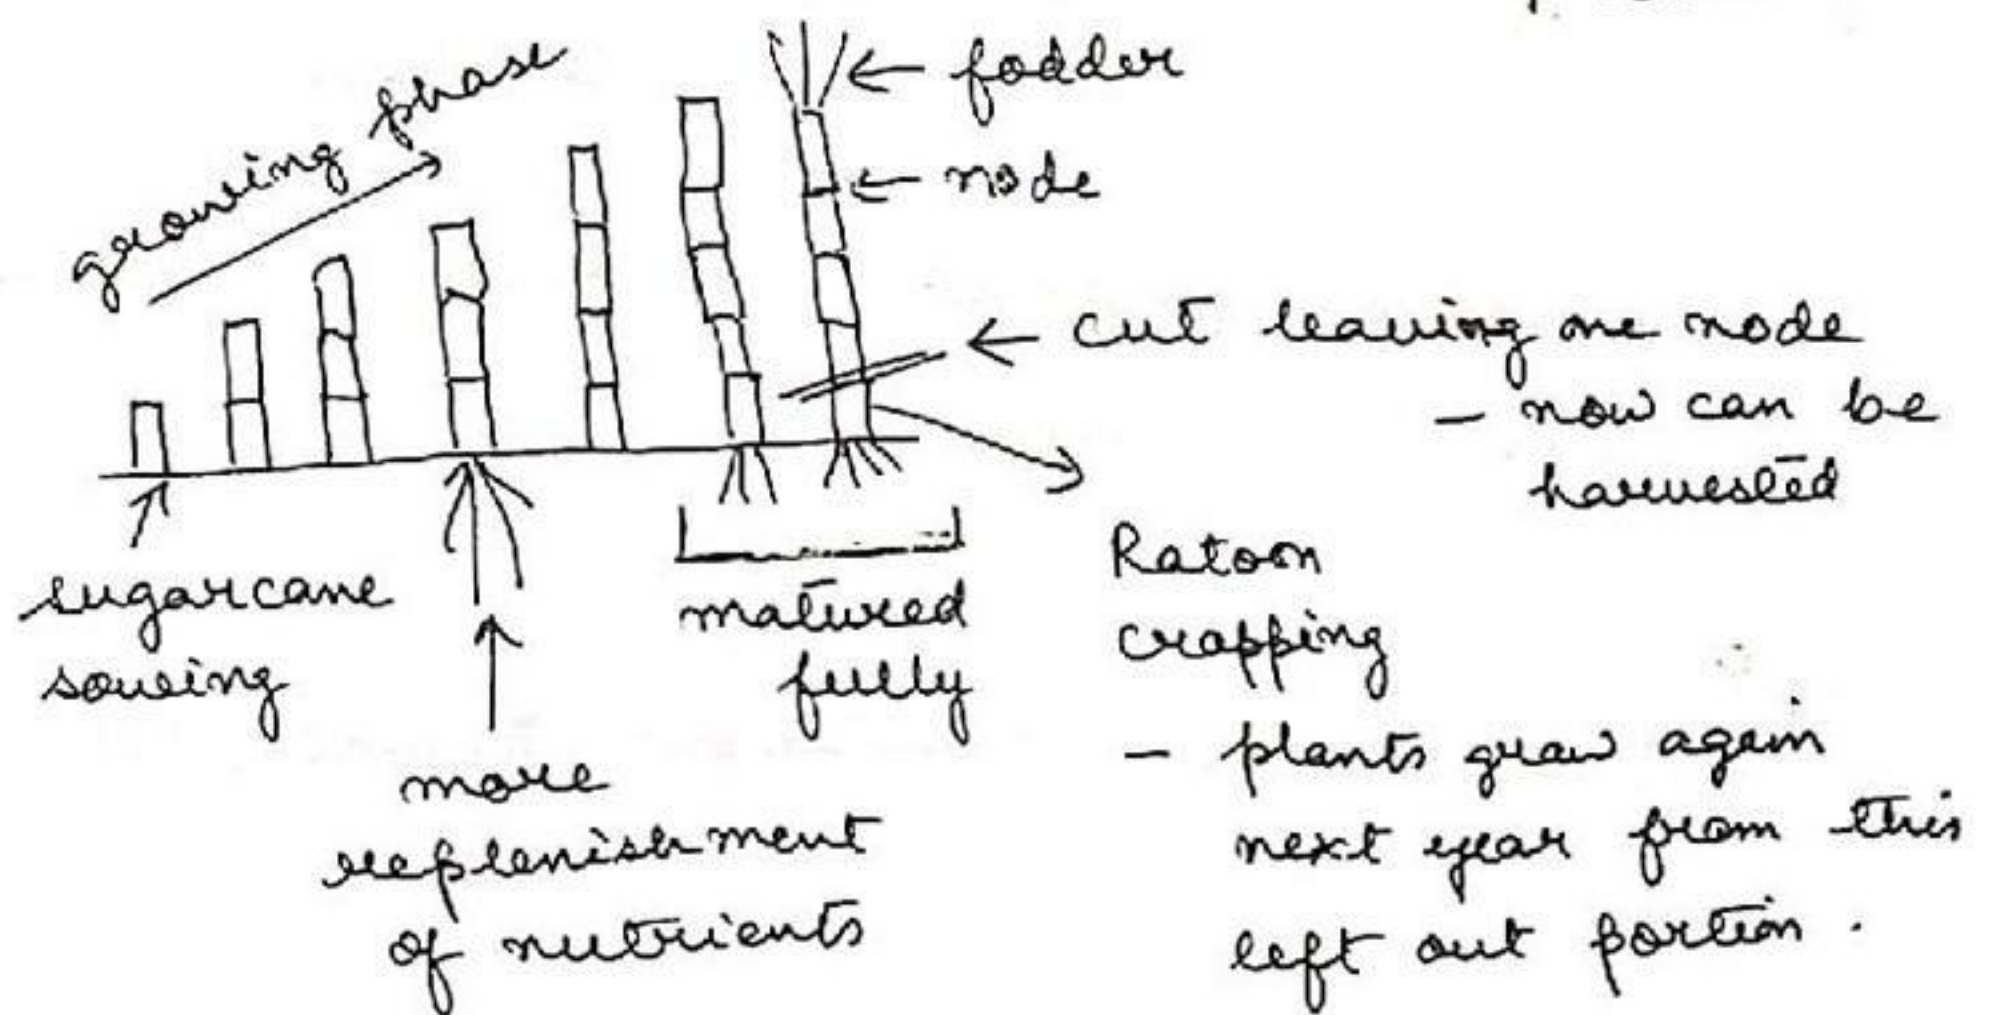 growing phase
← fodder
← node
← cut leaving one node
- now can be
harvested
sugarcane
sowing
more
replenishment
of nutrients
matured
fully
Ratoon
cropping
- plants grow again
next year from this
left out portion.